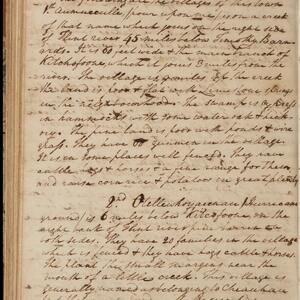 the villages of this town
1st Aumuccullee, pour upon me, is on a creek
of that name which joins on the right side
of Flint river 45 miles below Timothy Barn-
ards. It is 60 feet wide & the main branch of
Kitchofoone, which it joins 3 miles from the
river. The village is 9 miles up the creek
the land is poor & flat with limestone springs
in the neighbourhood. The swamp is cypress
in hammocks with some water oak & hick-
ory. The pine land is poor with ponds & wire
grass. They have 60 gunmen in the village
It is in some places well fenced. They have
cattle hogs & horses & a fine range for them
and raise corn rice & potatoes in great plenty
2nd Otellewhoyaunau (hurricane
ground) is 6 miles below Kitchofoone on the
right bank of Flint river, with
both sides. They have 20 families in the village
which is fenced & they have hogs cattle & horses.
the small margins near the
mouth of a little creek. This village is
generally named as belonging to Cheauhau